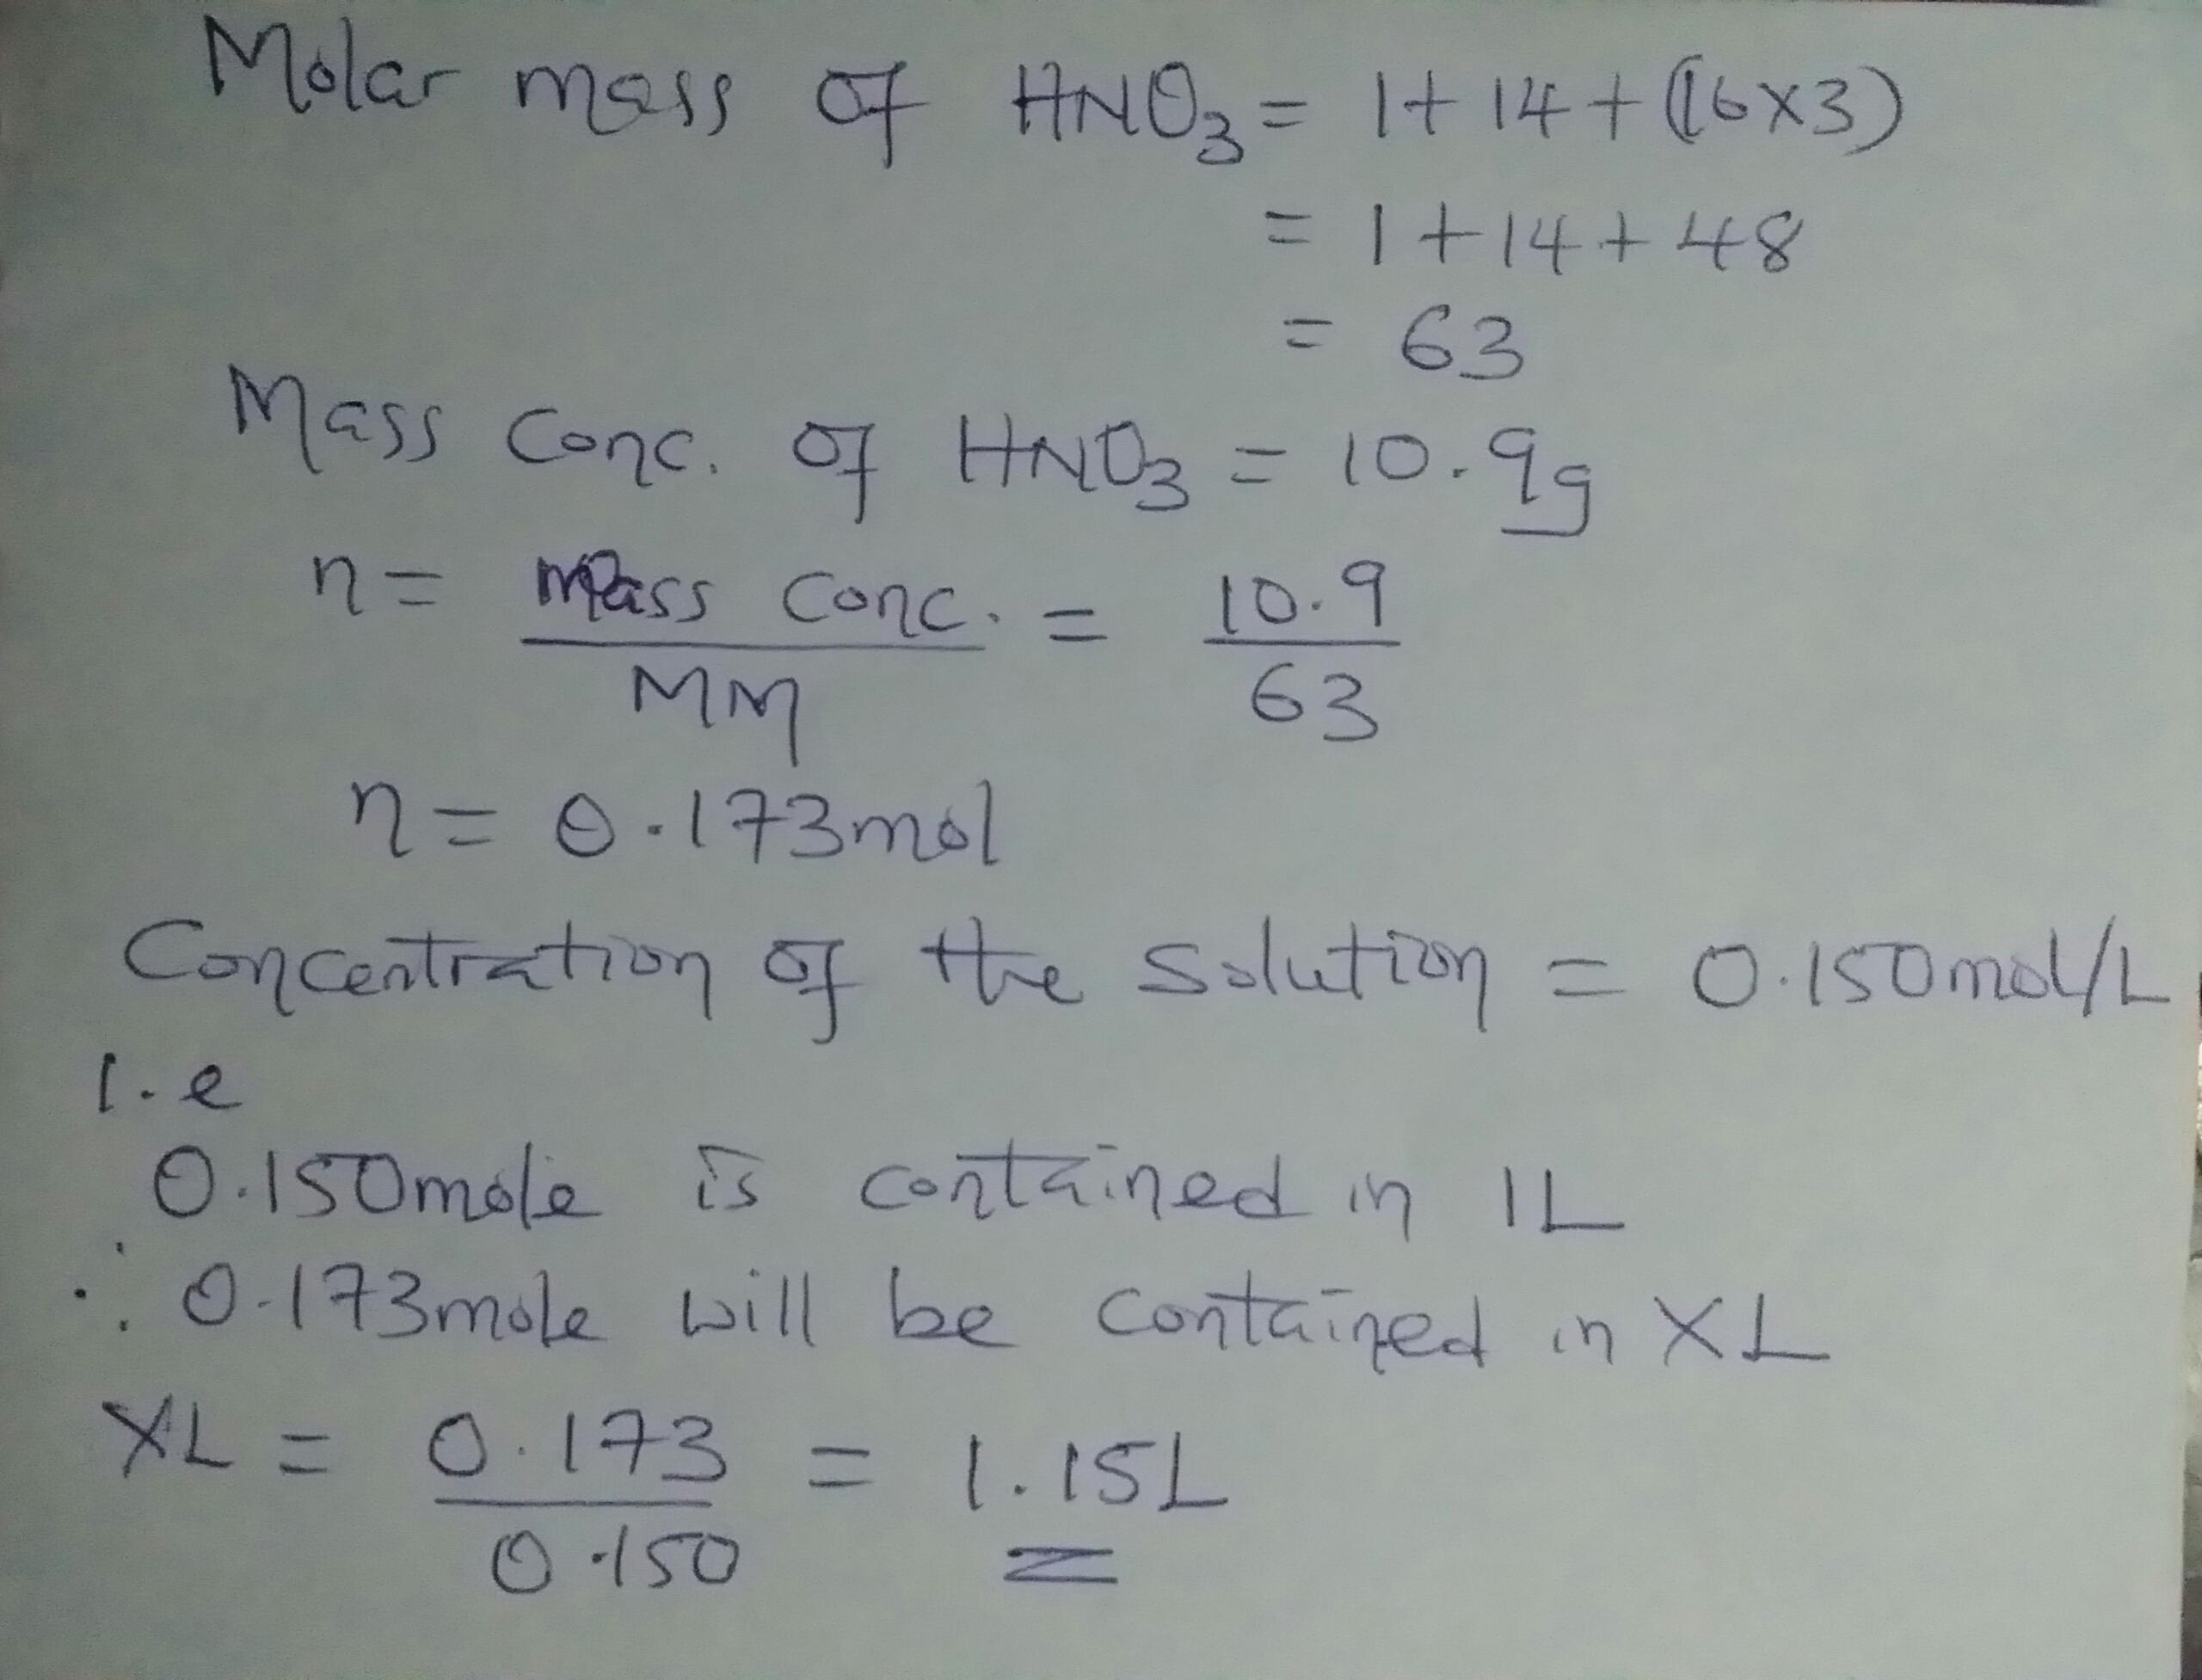 Molar mass of HNO₃ = 1 + 14 + (16×3)
= 1 + 14 + 48
= 63
Mass Conc. of HNO₃ = 10.9g
n = mass conc. / MM = 10.9 / 63
n = 0.173mol
Concentration of the solution = 0.150mol/L
I.e
0.150mole is contained in 1L
∴ 0.173mole will be contained in XL
XL = 0.173 / 0.150 = 1.15L